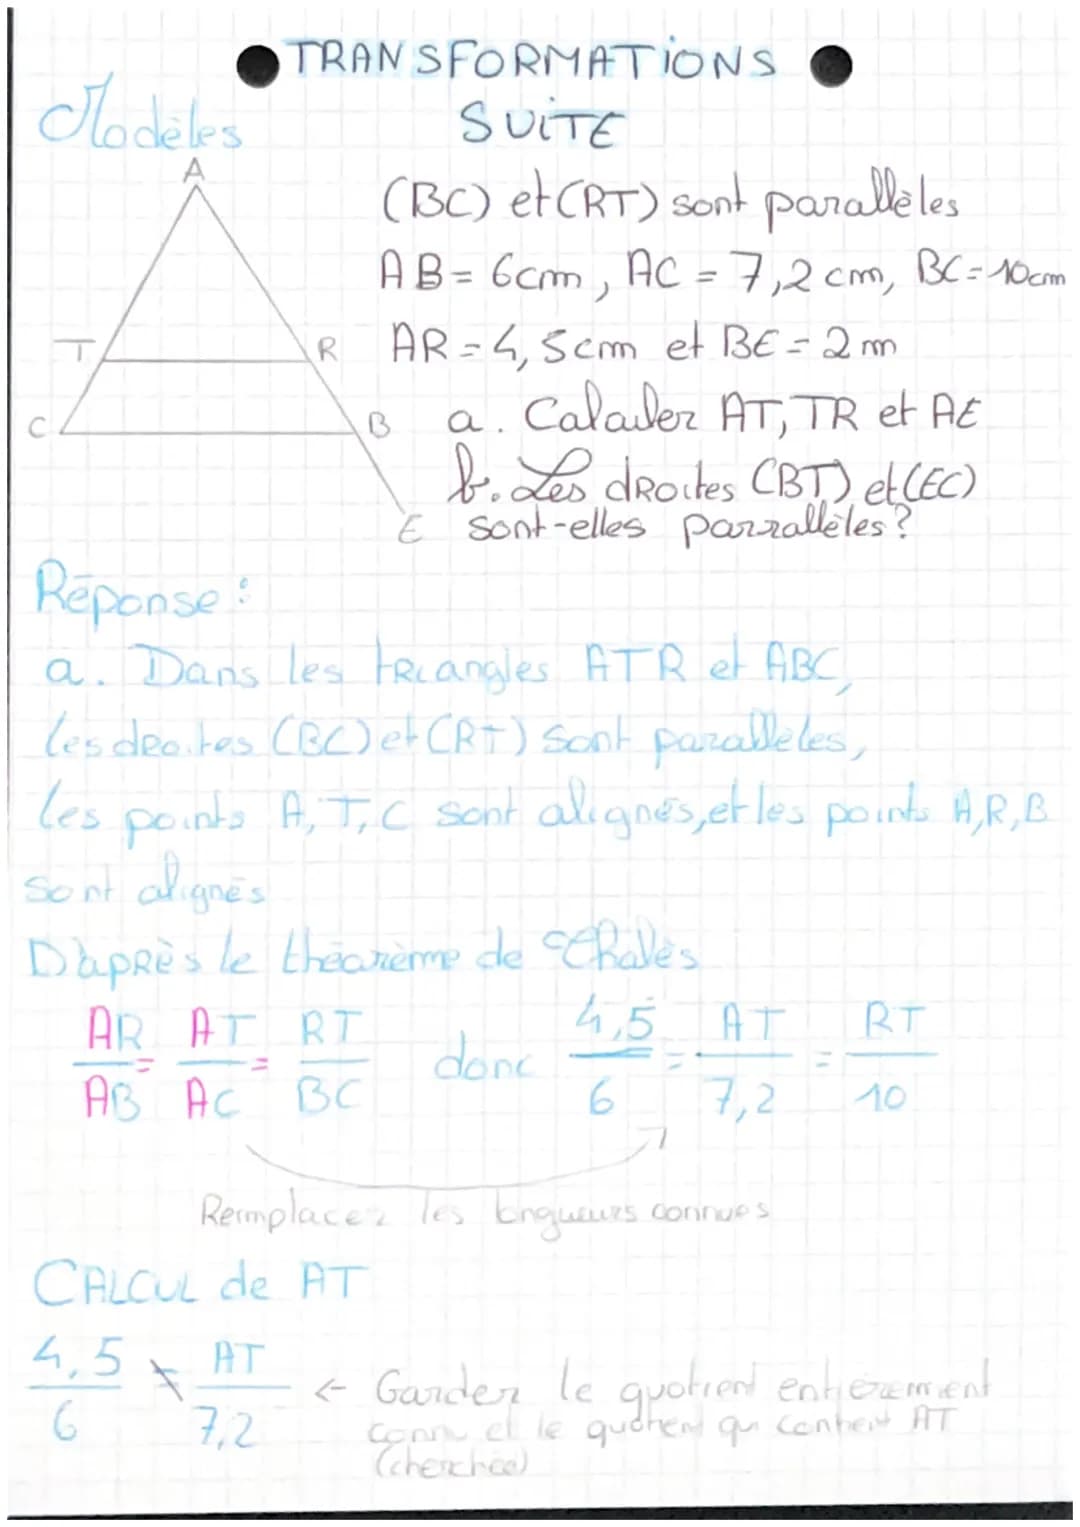 TRANSFORMATIONS
SUITE
Modèles
A
T
R
C
B
E
(BC) et (RT) sont parallèles
AB = 6cm, AC = 7,2 cm, BC = 10cm
AR = 4,5cm et BE = 2 m
a. Calculer AT, TR et AE
b. Les droites (BT) et (EC)
sont-elles parrallèles ?
Réponse :
a. Dans les triangles ATR et ABC,
les droites (BC) et (RT) sont parallèles,
les points A, T, C sont alignés, et les points A, R, B
sont alignés
D'après le théorème de Thalès
AR/AB = AT/AC = RT/BC donc 4,5/6 = AT/7,2 = RT/10
Remplacer les longueurs connues
CALCUL de AT
4,5/6 = AT/7,2 ← Garder le quotient entièrement
connu et le quotient qui contient AT
(cherchée)